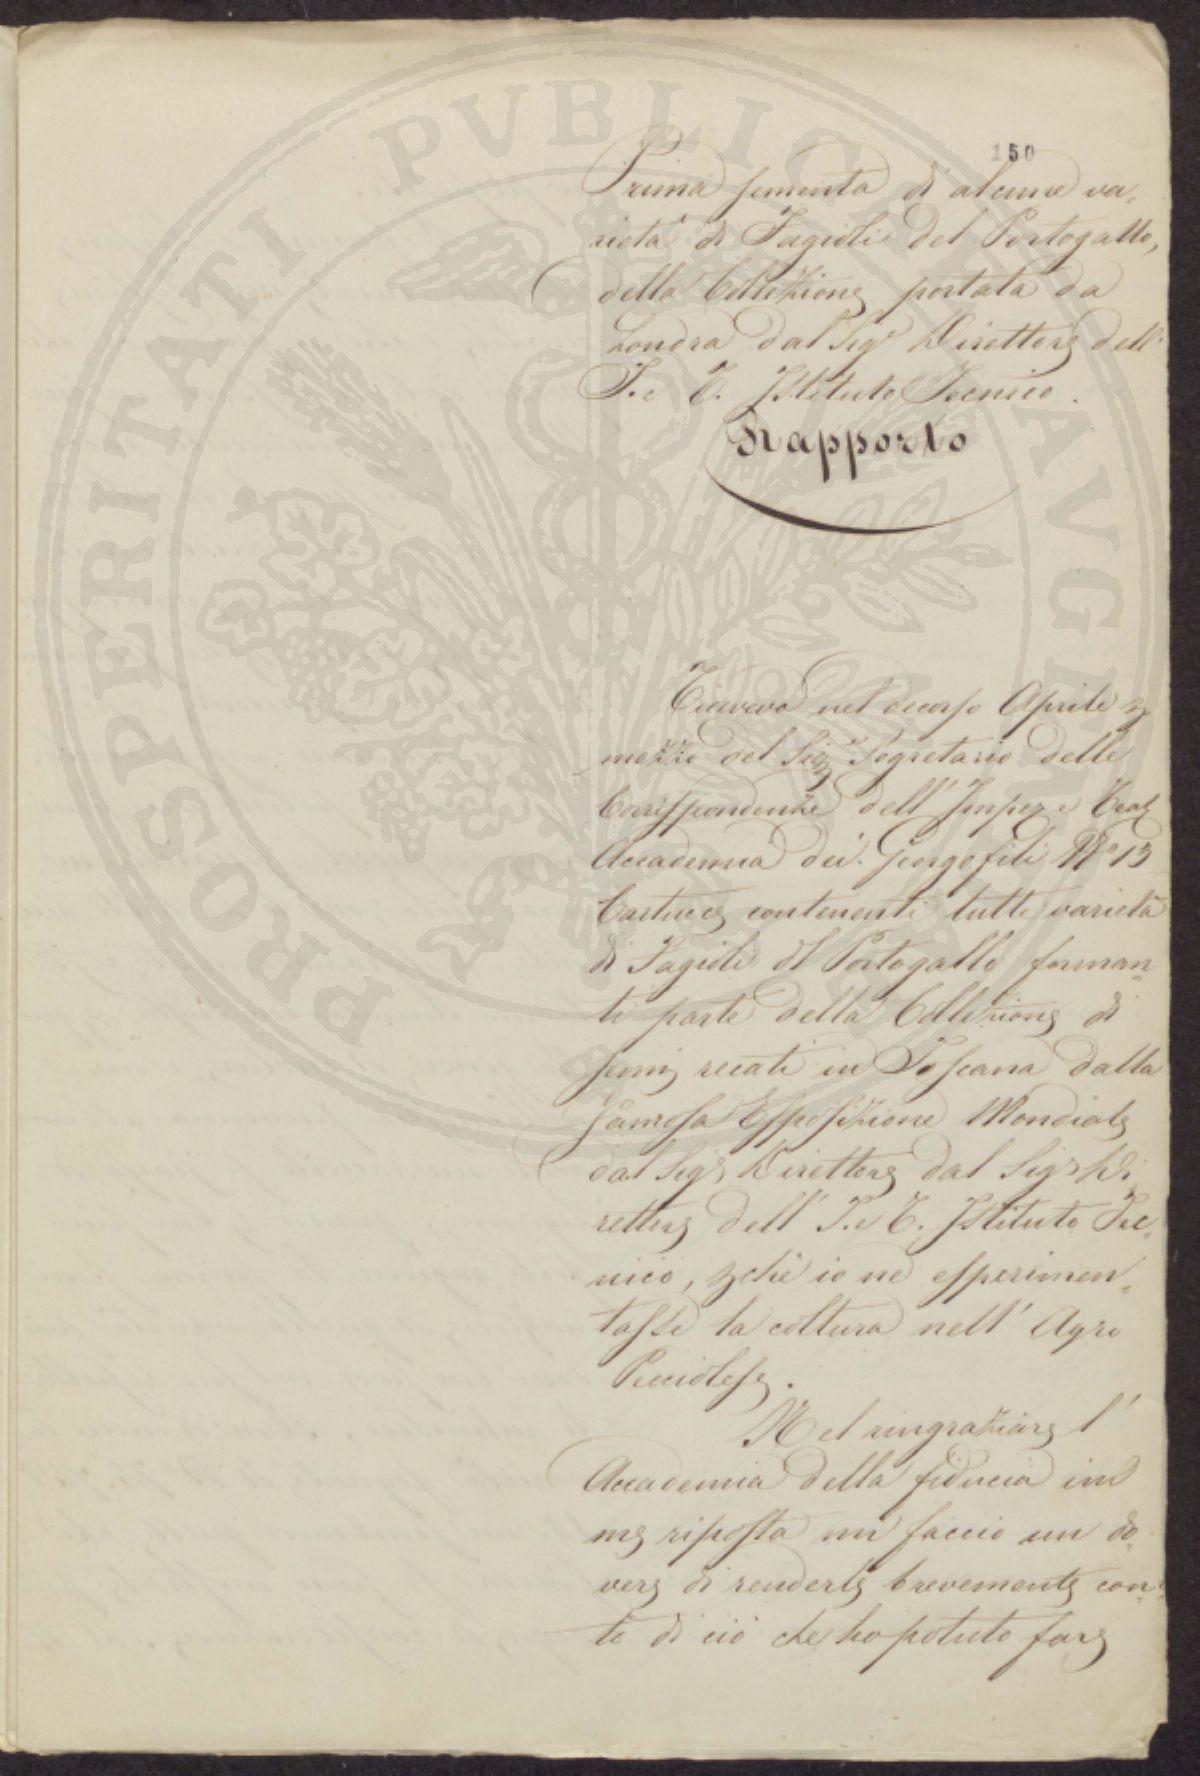 150
Prima sementa di alcune va-
rietà di Fagioli del Portogallo,
della Collezione portata da
Londra dal Sigr Direttore dell'
I. e R. Istituto Tecnico.
Rapporto
Ricevevo nel decorso Aprile p
mezzo del Sigr Segretario delle
Corrispondenze dell' Imper e Real
Accademia dei Georgofili No 13
Cartucce contenenti tutte varietà
di Fagioli dl Portogallo forman-
ti parte della Collezione di
semi recati in Toscana dalla
famosa Esposizione Mondiale
dal Sigr Direttore dal Sigr Di
rettore dell' I. e R. Istituto Tec-
nico, pchè io ne esperimen-
tassi la coltura nell' Agro
Pecciolese.
Nel ringraziare l'
Accademia della fiducia in
me riposta mi faccio un do-
vere di renderle brevemente con-
to di ciò che ho potuto fare
PROSPERITATI PVBLICAE AVGE